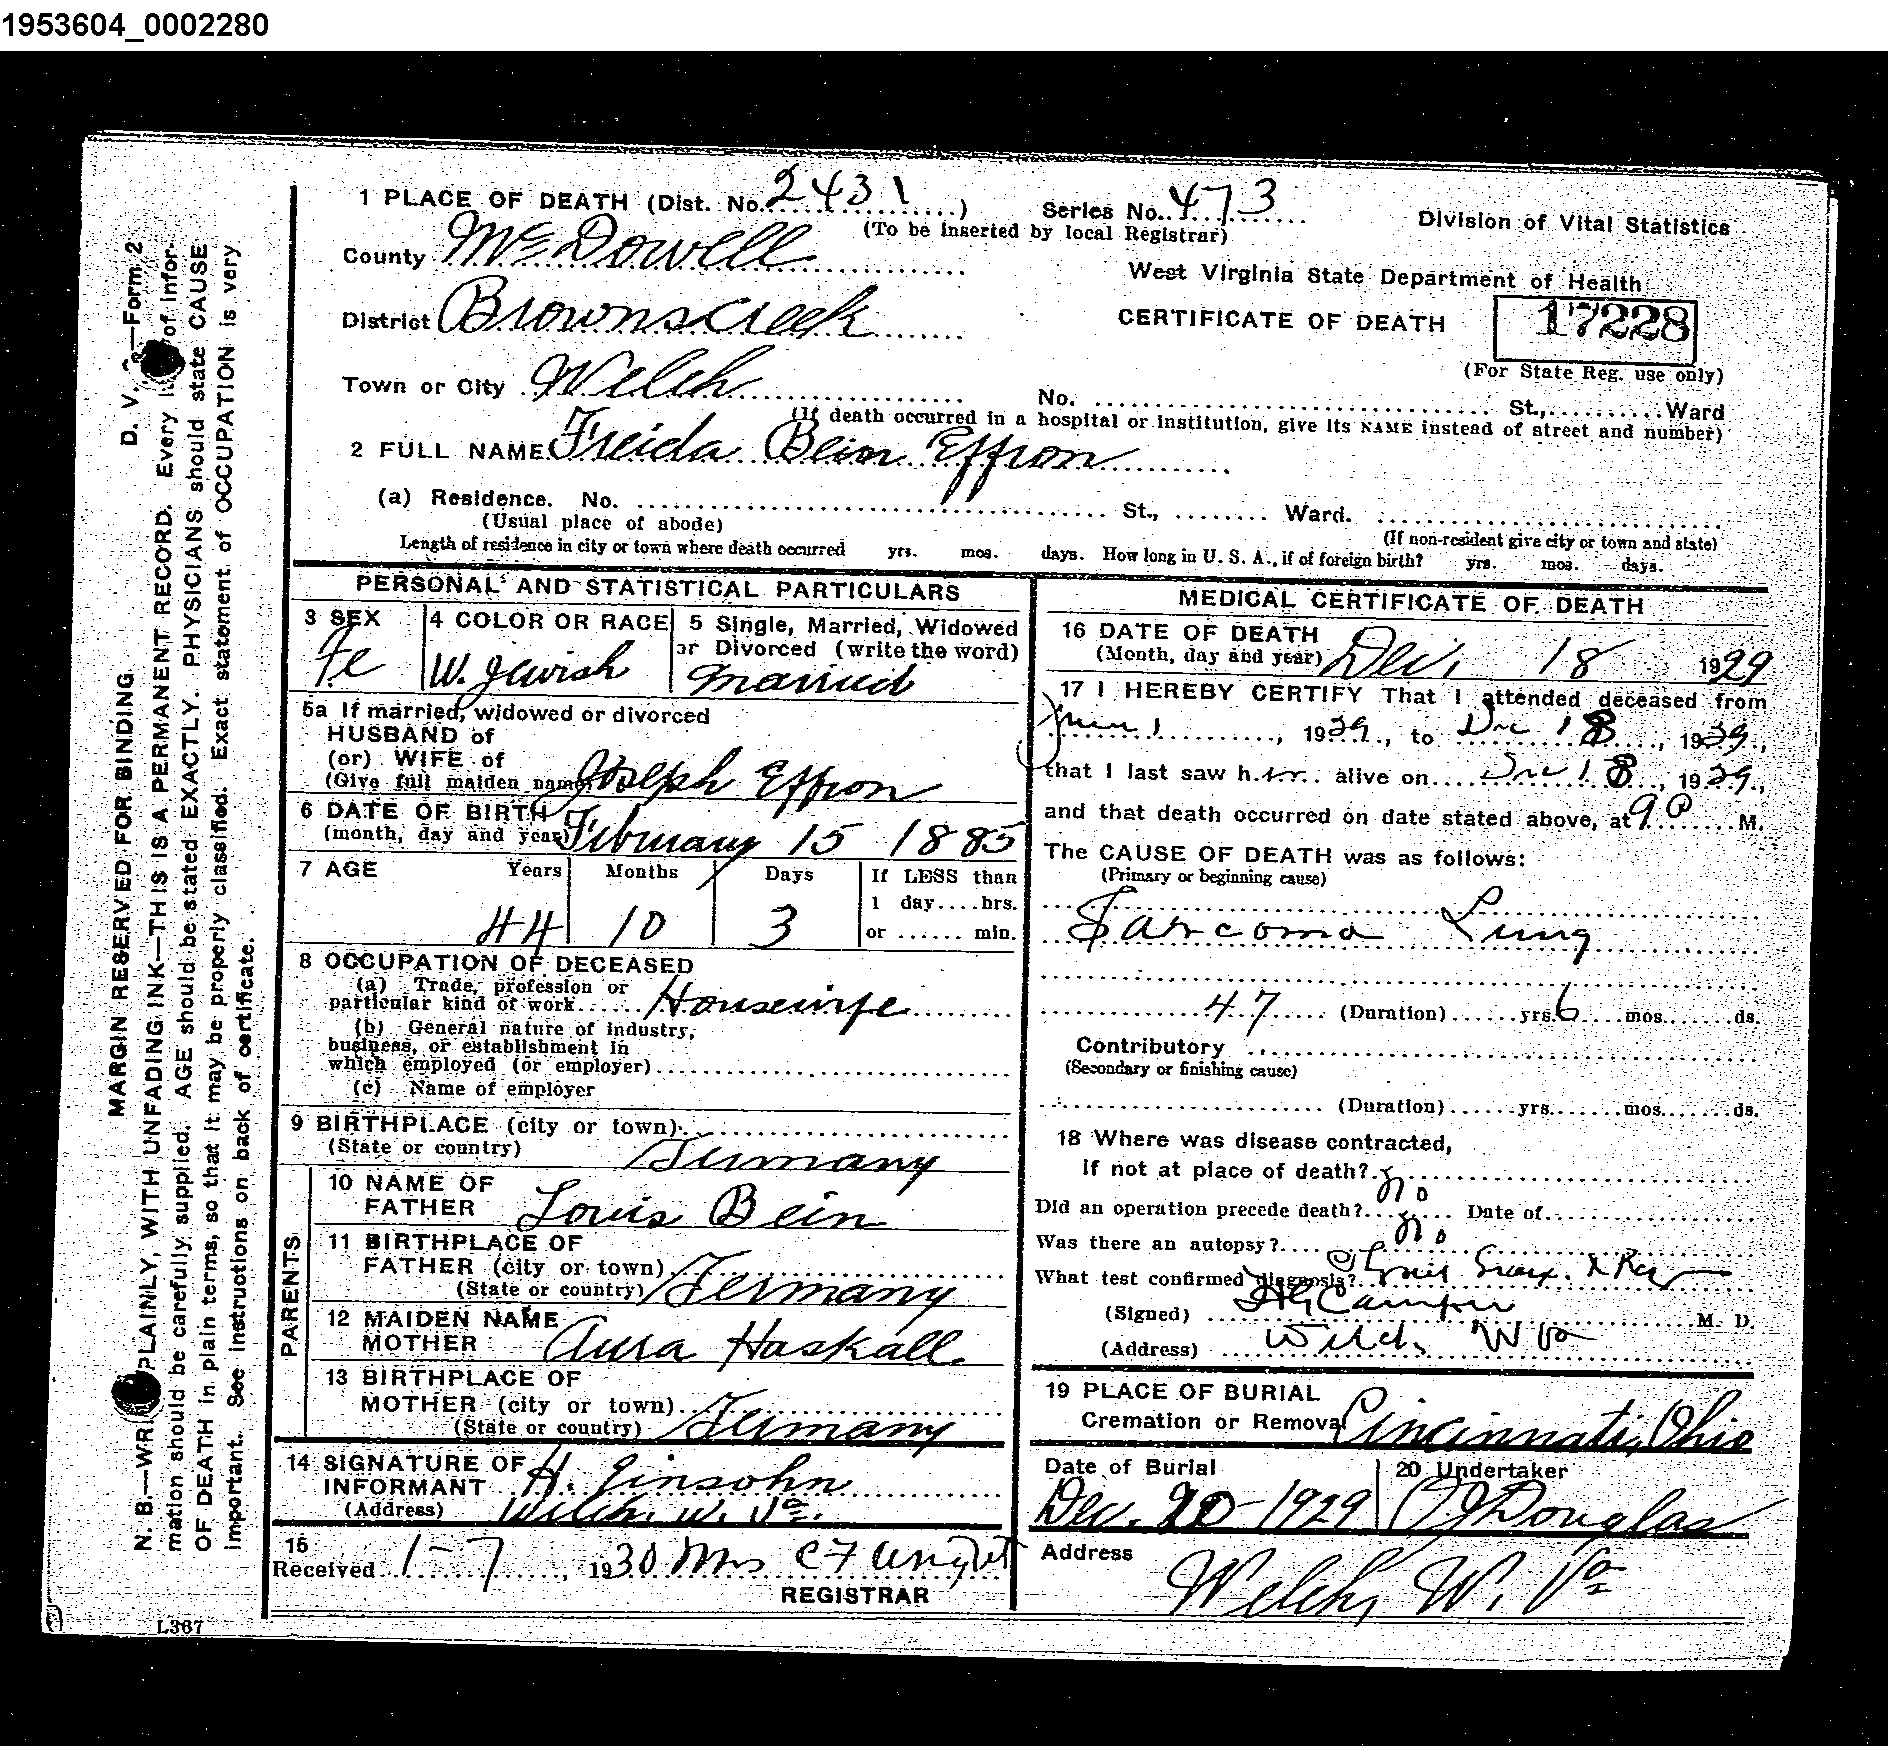 1953604_0002280
1 PLACE OF DEATH (Dist. No. 2431) Series No. 473 Division of Vital Statistics
(To be inserted by local Registrar)
County McDowell
West Virginia State Department of Health
District Brownscreek
CERTIFICATE OF DEATH 17228
(For State Reg. use only)
Town or City Welch
No. St., Ward
(If death occurred in a hospital or institution, give its NAME instead of street and number)
2 FULL NAME Freida Bein Effron
(a) Residence. No. St., Ward.
(Usual place of abode) (If non-resident give city or town and state)
Length of residence in city or town where death occurred yrs. mos. days. How long in U. S. A., if of foreign birth? yrs. mos. days.
PERSONAL AND STATISTICAL PARTICULARS
3 SEX 4 COLOR OR RACE 5 Single, Married, Widowed
or Divorced (write the word)
Fe W. Jewish Married
5a If married, widowed or divorced
HUSBAND of
(or) WIFE of
(Give full maiden name) Joseph Effron
6 DATE OF BIRTH
(month, day and year) February 15 1885
7 AGE Years Months Days If LESS than
1 day....hrs.
44 10 3 or ...... min.
8 OCCUPATION OF DECEASED
(a) Trade, profession or
particular kind of work Housewife
(b) General nature of industry,
business, or establishment in
which employed (or employer)
(c) Name of employer
9 BIRTHPLACE (city or town)
(State or country) Germany
PARENTS
10 NAME OF
FATHER Louis Bein
11 BIRTHPLACE OF
FATHER (city or town)
(State or country) Germany
12 MAIDEN NAME
MOTHER Aura Haskall
13 BIRTHPLACE OF
MOTHER (city or town)
(State or country) Germany
14 SIGNATURE OF
INFORMANT H. Ginsohn
(Address) Welch, W. Va.
15
Received 1-7, 1930 Mrs C F
REGISTRAR
MEDICAL CERTIFICATE OF DEATH
16 DATE OF DEATH
(Month, day and year) Dec. 18 1929
17 I HEREBY CERTIFY That I attended deceased from
June 1, 1929, to Dec 18, 1929,
that I last saw her alive on Dec 18, 1929,
and that death occurred on date stated above, at 9 P M.
The CAUSE OF DEATH was as follows:
(Primary or beginning cause)
Sarcoma Lung
47 (Duration) yrs. 6 mos. ds.
Contributory
(Secondary or finishing cause)
(Duration) yrs. mos. ds.
18 Where was disease contracted,
If not at place of death?
Did an operation precede death? no Date of
Was there an autopsy? no
What test confirmed diagnosis? X Ray
(Signed) M. D.
(Address) Welch W Va
19 PLACE OF BURIAL
Cremation or Removal Cincinnati, Ohio
Date of Burial 20 Undertaker
Dec. 20 1929 Douglas
Address
Welch, W. Va
D. V. S.—Form 2
MARGIN RESERVED FOR BINDING
N. B.—WRITE PLAINLY, WITH UNFADING INK—THIS IS A PERMANENT RECORD. Every item of infor-
mation should be carefully supplied. AGE should be stated EXACTLY. PHYSICIANS should state CAUSE
OF DEATH in plain terms, so that it may be properly classified. Exact statement of OCCUPATION is very
important. See instructions on back of certificate.
L367